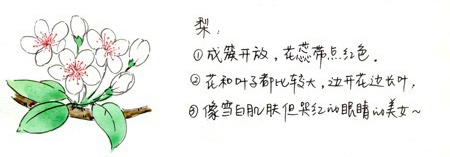 梨：
①成簇开放，花蕊带点红色．
②花和叶子都比较大，边开花边长叶，
③像雪白肌肤但哭红的眼睛的美女～